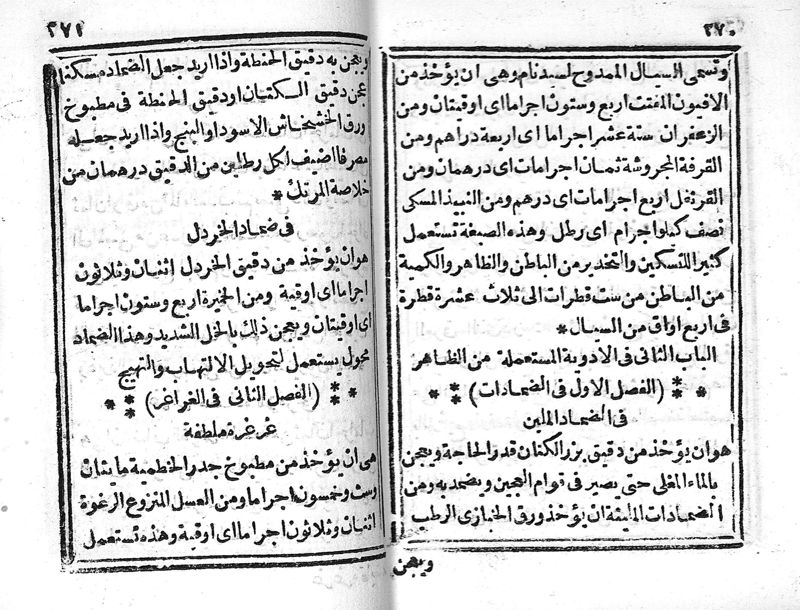 ٢٧٠
وتسمى السيال الممدوح لسيدنام وهى ان يؤخذ من
الافيون المفتت اربع وستون اجراما اى اوقيتان ومن
الزعفران ستة عشر اجراما اى اربعة دراهم ومن
القرفة المجروشة ثمان اجرامات اى درهمان ومن
القرنفل اربع اجرامات اى درهم ومن النبيذ المسكى
نصف كيلو اجرام اى رطل وهذه الصبغة تستعمل
كثيرا للتسكين والتخدير من الباطن والظاهر والكمية
من الباطن من ست قطرات الى ثلاث عشرة قطرة
فى اربع اواق من السيال *
الباب الثانى فى الادوية المستعملة من الظاهر
* * * (الفصل الاول فى الضمادات) * * *
فى الضماد الملين
هو ان يؤخذ من دقيق بزر الكتان قدر الحاجة ويعجن
بالماء المغلى حتى يصير فى قوام العجين ويضمد به ومن
الضمادات الملينة ان يؤخذ ورق الخبازى الرطب
ويعجن
٢٧١
ويعجن به دقيق الحنطة واذا اريد جعل الضماد مسكنا
عجن دقيق الكتان او دقيق الحنطة فى مطبوخ
ورق الخشخاش الاسود او البنج واذا اريد جعله
مصرفا اضيف لكل رطلين من الدقيق درهمان من
خلاصة المرتك *
فى ضماد الخردل
هو ان يؤخذ من دقيق الخردل اثنان وثلاثون
اجراما اى اوقية ومن الخميرة اربع وستون اجراما
اى اوقيتان ويعجن ذلك بالخل الشديد وهذا الضماد
محول يستعمل لتحويل الالتهاب والتهيج
* * * (الفصل الثانى فى الغراغر) * * *
غرغرة ملطفة
هى ان يؤخذ من مطبوخ جدر الخطمية مايتان
وست وخمسون اجراما ومن العسل المنزوع الرغوة
اثنان وثلاثون اجراما اى اوقية وهذه تستعمل